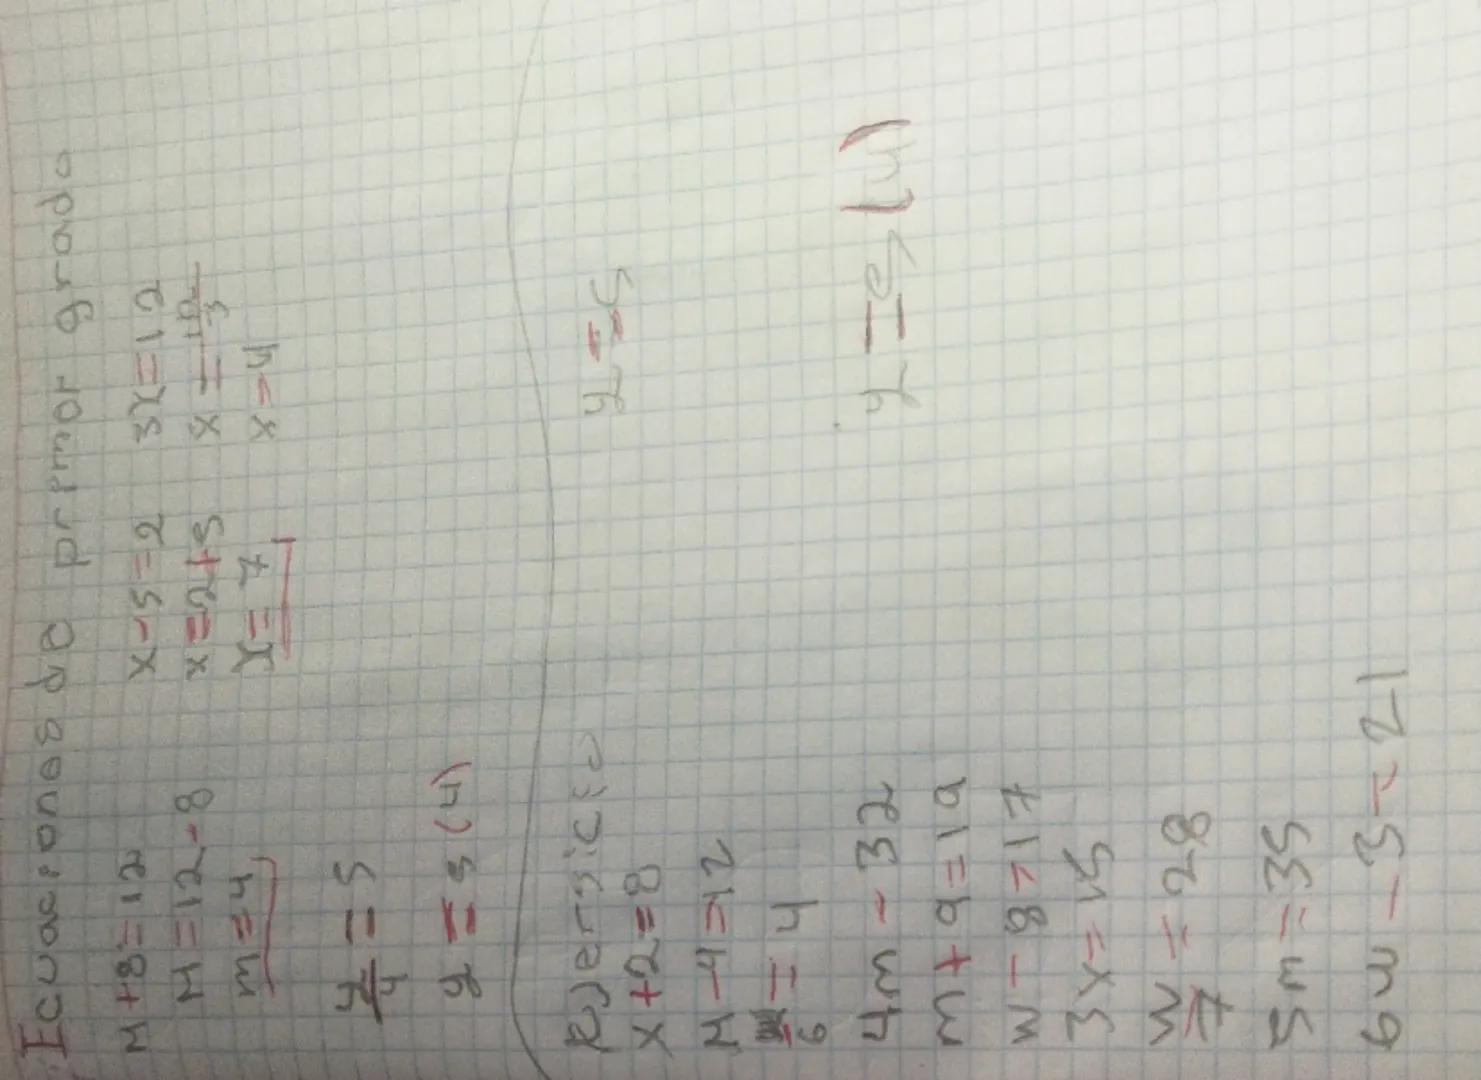 Icuaciones de primer grado
M+8=12 x-5=2 3x=12
M=12-8 x=2+5 x=12/3
m=4 x=7 x=4
y/4=5
y=5(4)
Ejersicio
x+2=8 y=5
M-4=12
/6=4
4m-32 y=5(4)
m+9=19
w-8=17
3x=15
w/7=28
5m=35
6w-3=21